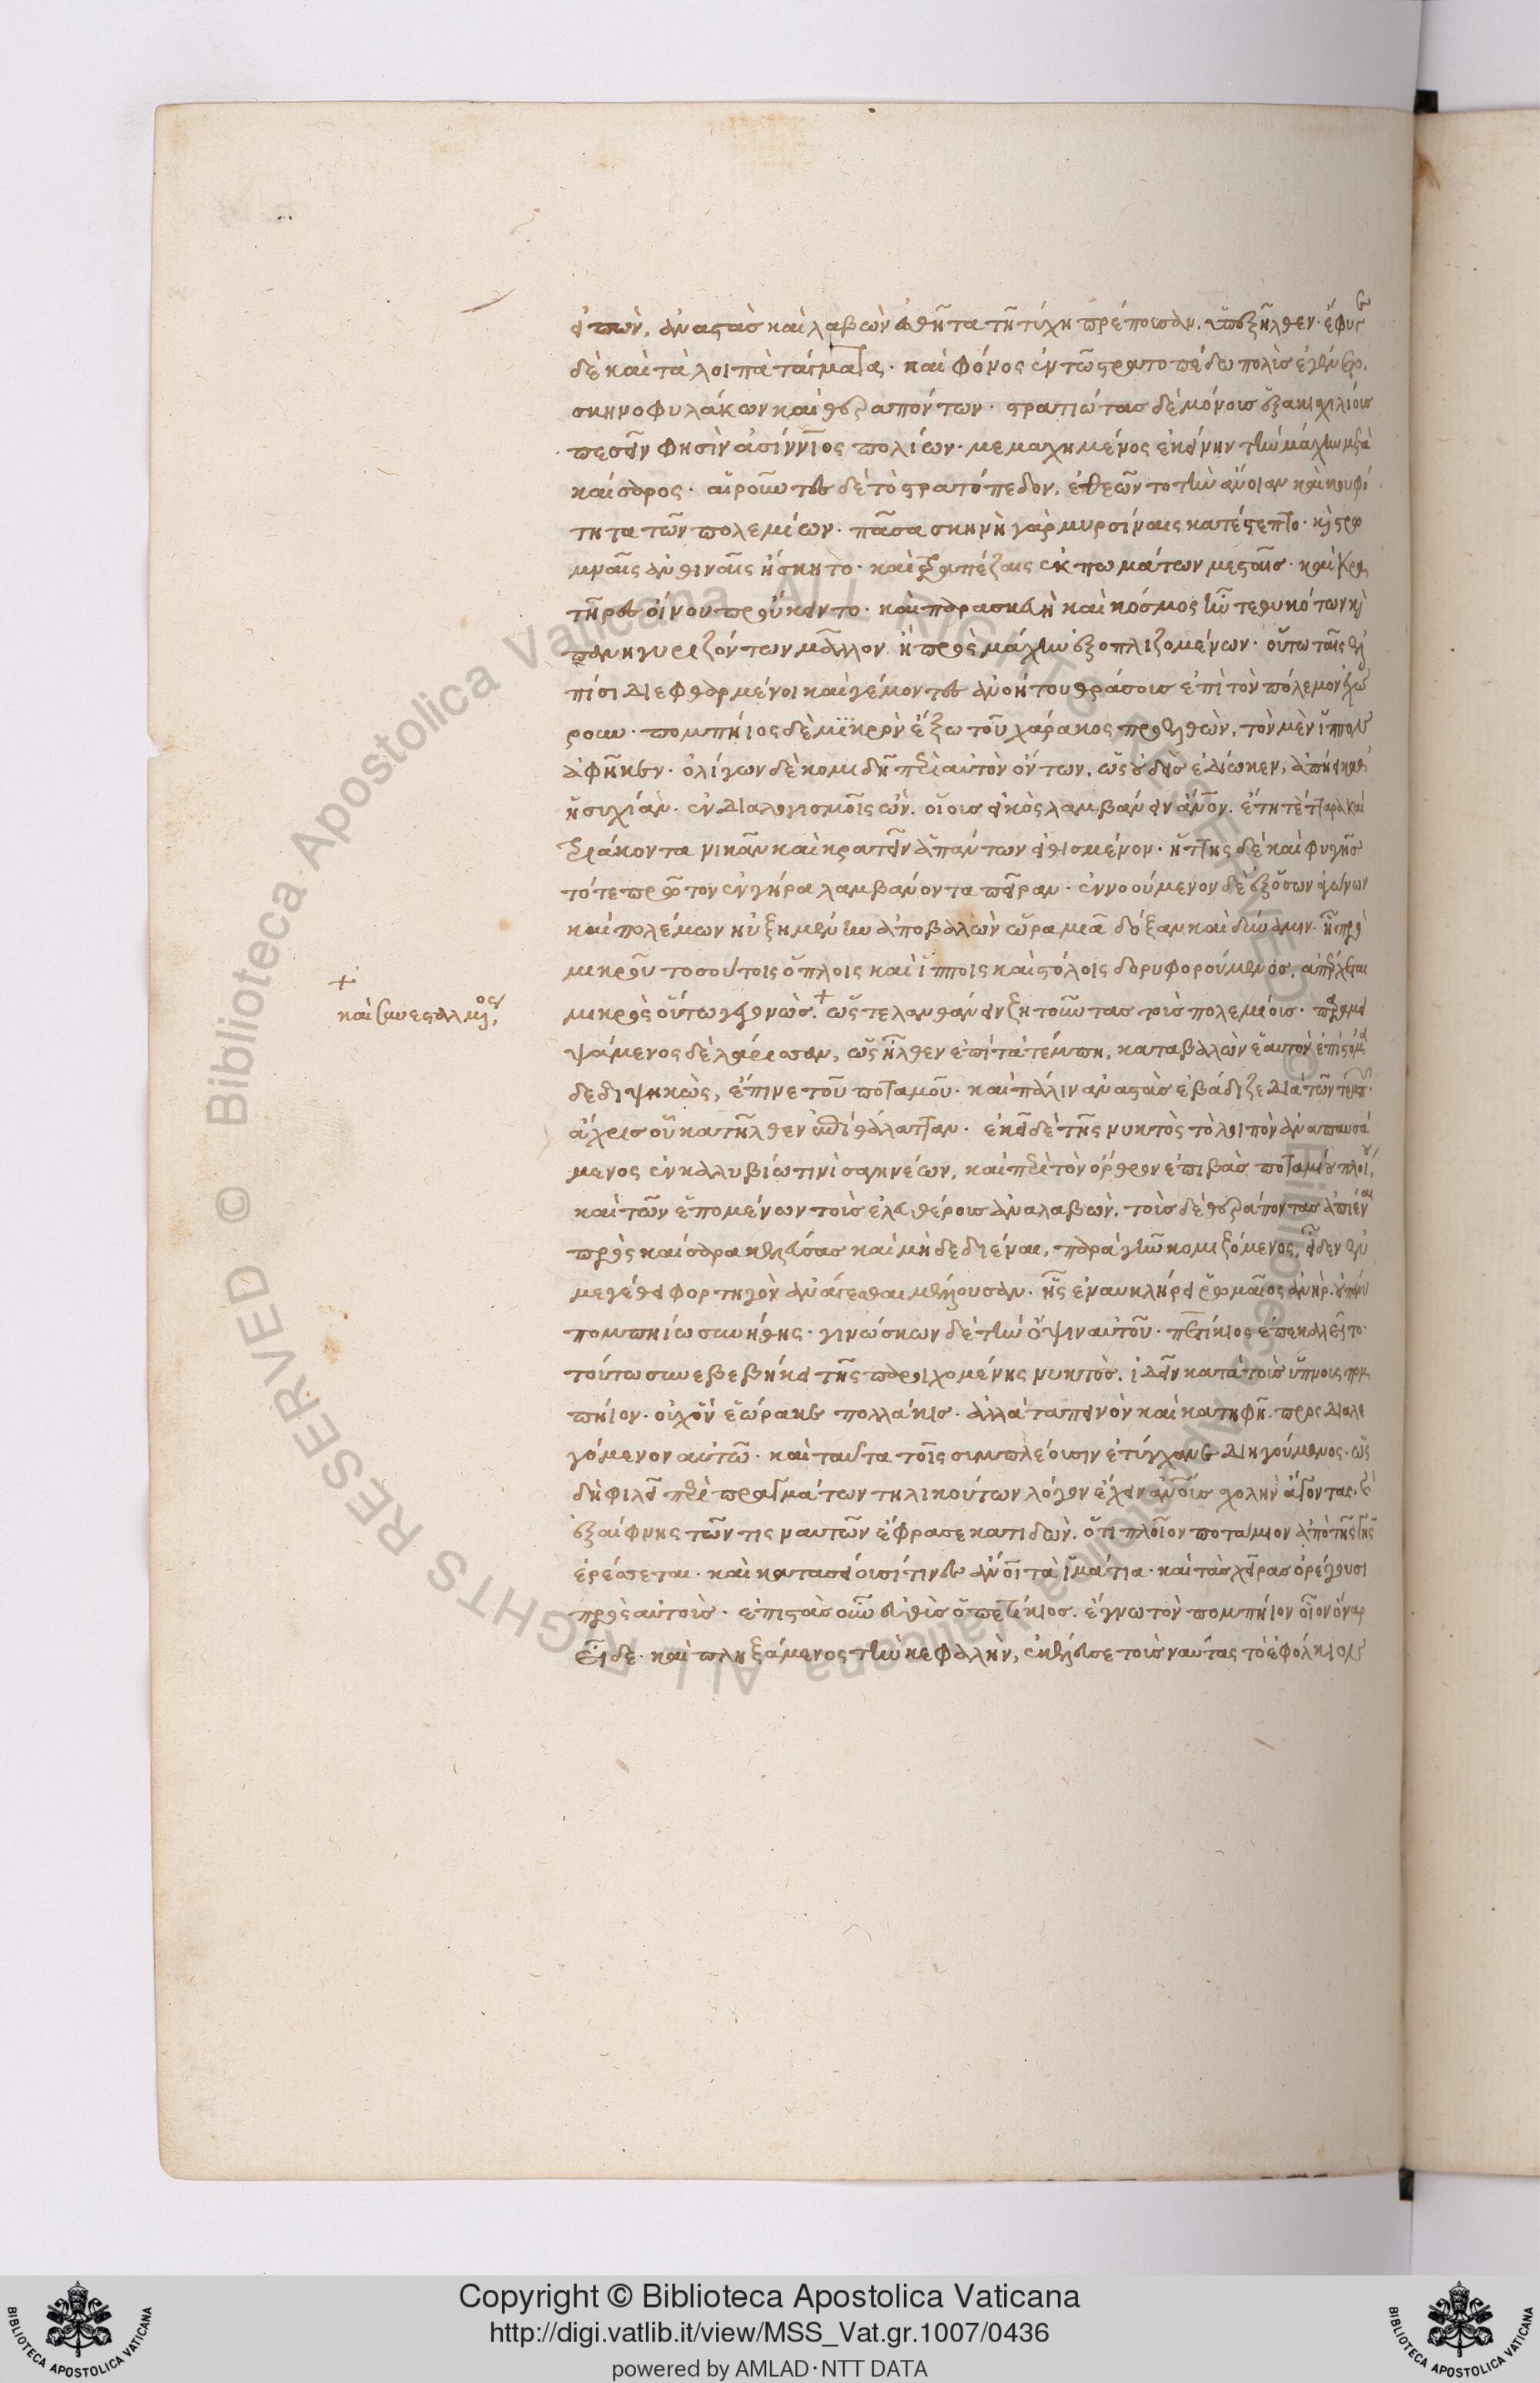 εἰπὼν, ἀναστὰς καὶ λαβὼν ἐσθῆτα τῇ τύχῃ πρέπουσαν, ὑπεξῆλθεν· ἔφυγε
δὲ καὶ τὰ λοιπὰ τάγματα· καὶ φόνος ἐν τῷ στρατοπέδῳ πολὺς ἐγένετο,
σκηνοφυλάκων καὶ θεραπόντων· στρατιώτας δὲ μόνους ἑξακισχιλίους
πεσεῖν φησὶν ἀσίννιος πολίων· μεμαχημένος ἐκείνην τὴν μάχην μετὰ
καίσαρος· αἱροῦντες δὲ τὸ στρατόπεδον, ἐθεῶντο τὴν ἄνοιαν καὶ κουφό
τητα τῶν πολεμίων· πᾶσα σκηνὴ γὰρ μυρσίναις κατέστεπτο· καὶ στρω
μναῖς ἀνθιναῖς ἤσκητο· καὶ τραπέζαις ἐκπωμάτων μεσταῖς· καὶ κρα
τῆρες οἴνου προὔκειντο· καὶ παρασκευὴ καὶ κόσμος ἦν τεθυκότων καὶ
πανηγυριζόντων μᾶλλον ἢ πρὸς μάχην ἐξοπλιζομένων· οὕτω ταῖς ἐλ
πίσι διεφθαρμένοι καὶ γέμοντες ἀνοήτου θράσους ἐπὶ τὸν πόλεμον ἐχώ
ρουν· πομπήιος δὲ μικρὸν ἔξω τοῦ χάρακος προελθὼν, τὸν μὲν ἵππον
ἀφῆκεν· ὀλίγων δὲ κομιδῇ περὶ αὐτὸν ὄντων, ὡς οὐδεὶς ἐδίωκεν, ἀπῄει καθ'
ἡσυχίαν· ἐν διαλογισμοῖς ὢν· οἵους εἰκὸς λαμβάνειν ἄνθρωπον· ἔτη τέτταρα καὶ
τριάκοντα νικᾶν καὶ κρατεῖν ἁπάντων εἰθισμένον· ἥττης δὲ καὶ φυγῆς
τότε πρῶτον ἐν γήρᾳ λαμβάνοντα πεῖραν· ἐννοούμενον δὲ ἐξ ὅσων ἀγώνων
καὶ πολέμων ηὐξημένην ἀποβαλὼν ὥρᾳ μιᾷ δόξαν καὶ δύναμιν· ᾗ πρὸ
μικροῦ τοσούτοις ὅπλοις καὶ ἵπποις καὶ στόλοις δορυφορούμενος, ἀπέρχεται
μικρὸς οὕτω γεγονὼς + ὥστε λανθάνειν ζητοῦντας τοὺς πολεμίους· παραμει
+ καὶ συνεσταλμένος
ψάμενος δὲ λάρισσαν, ὡς ἦλθεν ἐπὶ τὰ τέμπη, καταβαλὼν ἑαυτὸν ἐπὶ στόμα
δεδιψηκὼς, ἔπινε τοῦ ποταμοῦ· καὶ πάλιν ἀναστὰς ἐβάδιζε διὰ τῶν τεμπῶν
ἄχρις οὗ κατῆλθεν ἐπὶ θάλατταν· ἐκεῖ δὲ τῆς νυκτὸς τὸ λοιπὸν ἀναπαυσά
μενος ἐν καλυβίῳ τινὶ σαγηνέων, καὶ περὶ τὸν ὄρθρον ἐπιβὰς ποταμίου πλοίου,
καὶ τῶν ἑπομένων τοὺς ἐλευθέρους ἀναλαβὼν, τοὺς δὲ θεράποντας ἀπιέναι
πρὸς καίσαρα κελεύσας καὶ μὴ δεδιέναι, παρὰ γῆν κομιζόμενος, εἶδεν εὐ
μεγέθη φορτηγὸν ἀνάγεσθαι μέλλουσαν· ἧς ἐναυκλήρει ῥωμαῖος ἀνὴρ, οὐ πάνυ
πομπηίῳ συνήθης· γινώσκων δὲ τὴν ὄψιν αὐτοῦ· πετίκιος ἐπεκαλεῖτο·
τούτῳ συνεβεβήκει τῆς παρῳχημένης νυκτὸς, ἰδεῖν κατὰ τοὺς ὕπνους πομ
πήιον· οὐχ ὃν ἑώρακε πολλάκις· ἀλλὰ ταπεινὸν καὶ κατηφῆ· προσδιαλε
γόμενον αὐτῷ· καὶ ταῦτα τοῖς συμπλέουσιν ἐτύγχανε διηγούμενος· ὡς
δὴ φιλεῖ περὶ πραγμάτων τηλικούτων λόγον ἔχειν ἀνθρώπους σχολὴν ἄγοντας·
ἐξαίφνης τῶν τις ναυτῶν ἔφρασε κατιδὼν, ὅτι πλοῖον ποτάμιον ἀπὸ τῆς γῆς
ἐρέσσεται· καὶ κατασείουσί τινες ἄνθρωποι τὰ ἱμάτια· καὶ τὰς χεῖρας ὀρέγουσι
πρὸς αὐτούς· ἐπιστὰς οὖν εὐθὺς ὁ πετίκιος, ἔγνω τὸν πομπήιον οἷον ὄναρ
εἶδε· καὶ πληξάμενος τὴν κεφαλὴν, ἐκέλευσε τοὺς ναύτας τὸ ἐφόλκιον
Copyright © Biblioteca Apostolica Vaticana
http://digi.vatlib.it/view/MSS_Vat.gr.1007/0436
powered by AMLAD·NTT DATA